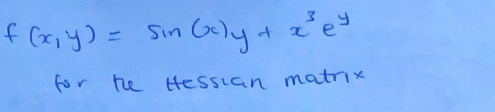 f(x,y) = sin(x)y + x³e^y
for the Hessian matrix